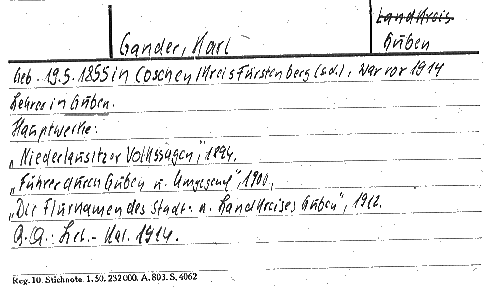 Landkreis
Gander, Karl
Guben
Geb. 19.5.1855 in Coschen Kreis Fürstenberg (s.d.), war vor 1914
Lehrer in Guben.
Hauptwerke:
„Niederlausitzer Volkssagen", 1894.
„Führer durch Guben u. Umgegend", 1900,
„Die Flurnamen des Stadt- u. Landkreises Guben", 1912.
Q.Q.: Lit.-Kal. 1914.
Reg. 10. Stichnote. 1. 50. 232000. A. 803. S. 4062